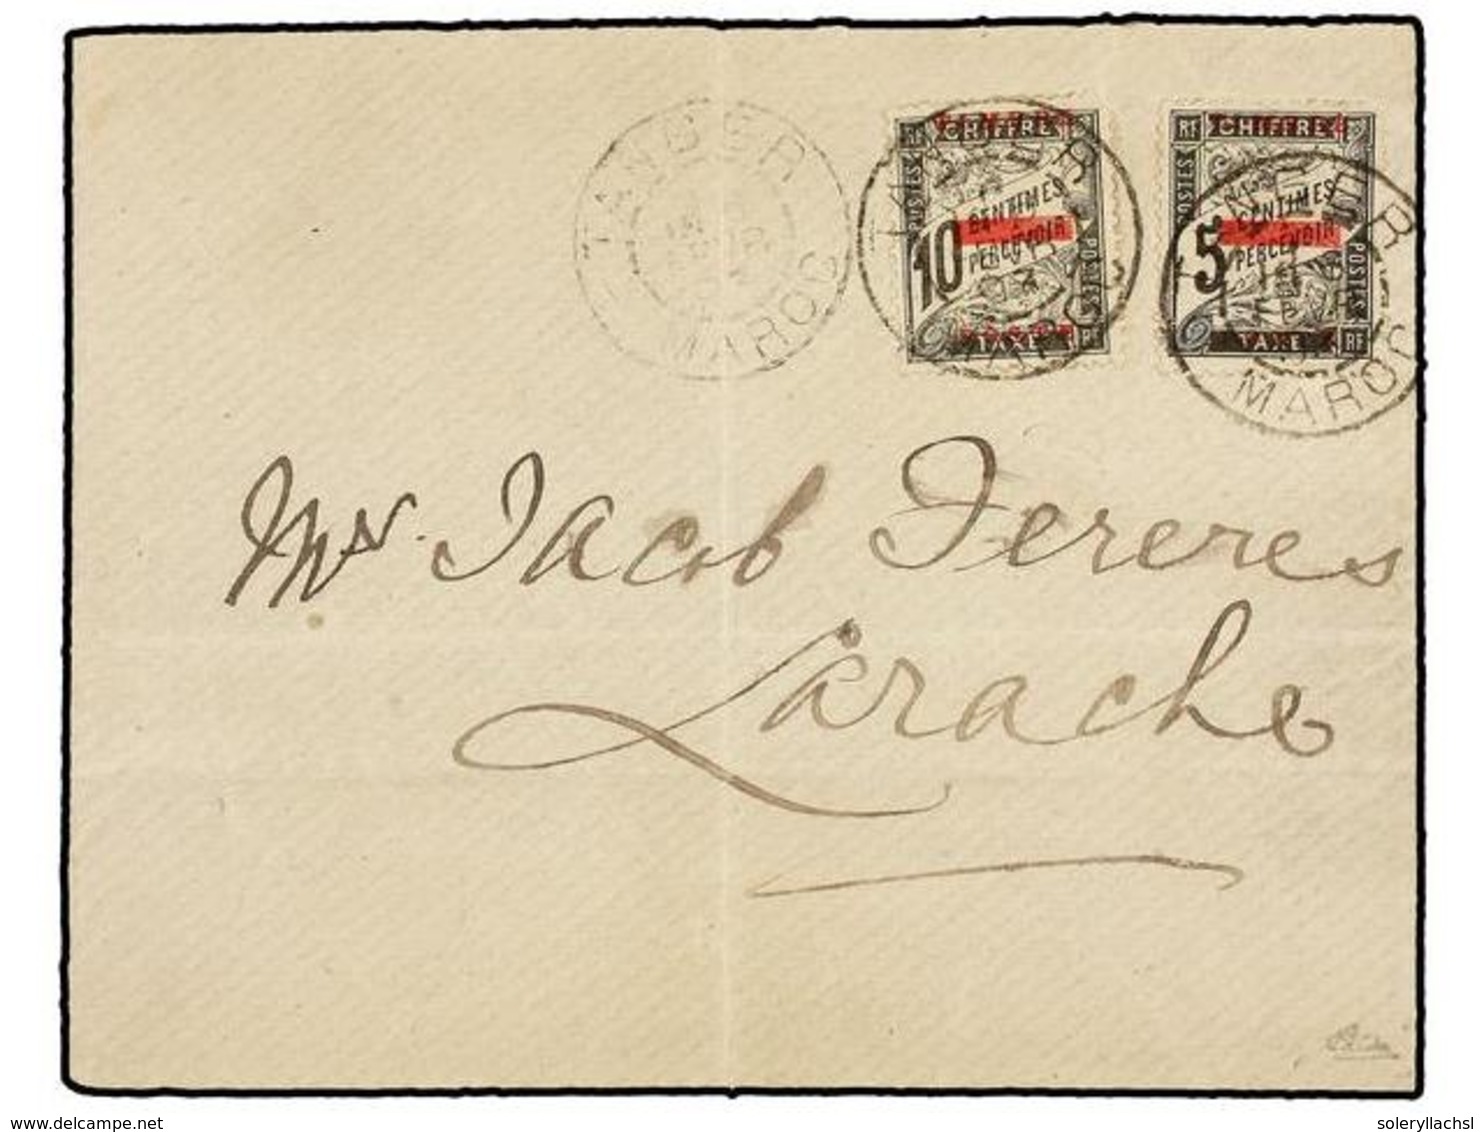 TANGER
MAROC
TANGER
MAROC
TANGER
MAROC
CHIFFRE
POSTES
10
CENTIMES
À
PERCEVOIR
POSTES
TAXE
RF
CHIFFRE
POSTES
5
CENTIMES
À
PERCEVOIR
POSTES
TAXE
RF
Mr. Jacob Fereres
Larache
www.delcampe.net
soleryllachsl